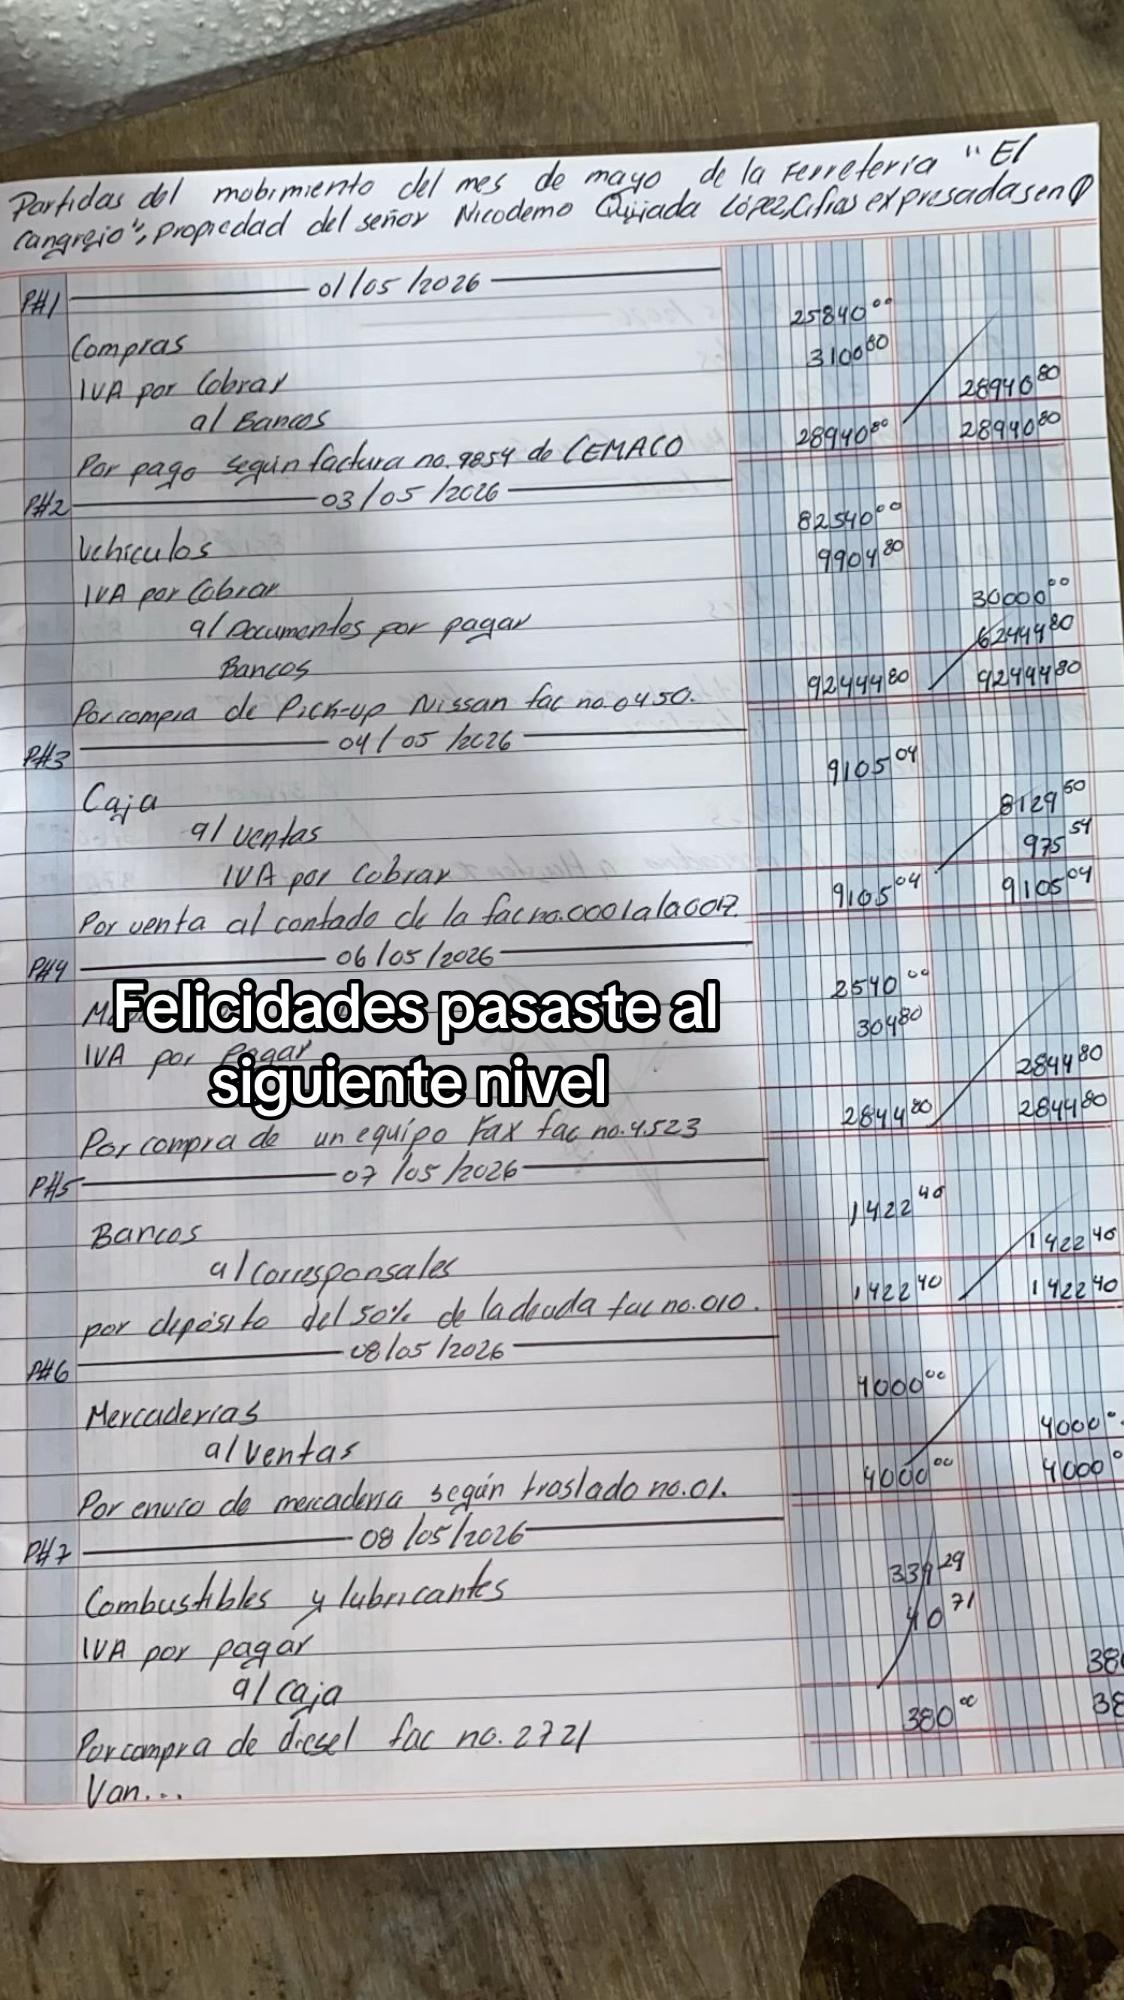 Partidas del mobimiento del mes de mayo de la Ferreteria "El
Cangrejo", Propiedad del señor Nicodemo Quijada López, Cifras expresadas en Q
P#1 01/05/2026
25840.00
Compras 3100.80
IVA por Cobrar 28940.80
a/ Bancos 28940.80 28940.80
Por pago según factura no. 9854 de CEMACO
P#2 03/05/2026
82540.00
Vehiculos 9904.80
IVA por Cobrar 30000.00
a/ Documentos por pagar 62444.80
Bancos 92444.80 92444.80
Por compra de Pick-up Nissan fac no. 0450.
P#3 04/05/2026
9105.04
Caja 8129.50
a/ Ventas 975.54
IVA por Cobrar 9105.04 9105.04
Por venta al contado de la fac no. 0001 a la 0017.
P#4 06/05/2026
2540.00
Felicidades pasaste al
304.80
IVA por Pagar 2844.80
siguiente nivel
2844.80 2844.80
Por compra de un equipo Fax fac no. 4523
P#5 07/05/2026
1422.40
Bancos 1422.40
a/ Corresponsales 1422.40 1422.40
por depósito del 50% de la deuda fac no. 010.
P#6 08/05/2026
4000.00
Mercaderias 4000.0
a/ Ventas 4000.00 4000.0
Por envio de mercaderia según traslado no. 01.
P#7 08/05/2026
339.29
Combustibles y lubricantes 40.71
IVA por pagar 380
a/ Caja 380.00 38
Por compra de diesel fac no. 2721
Van...